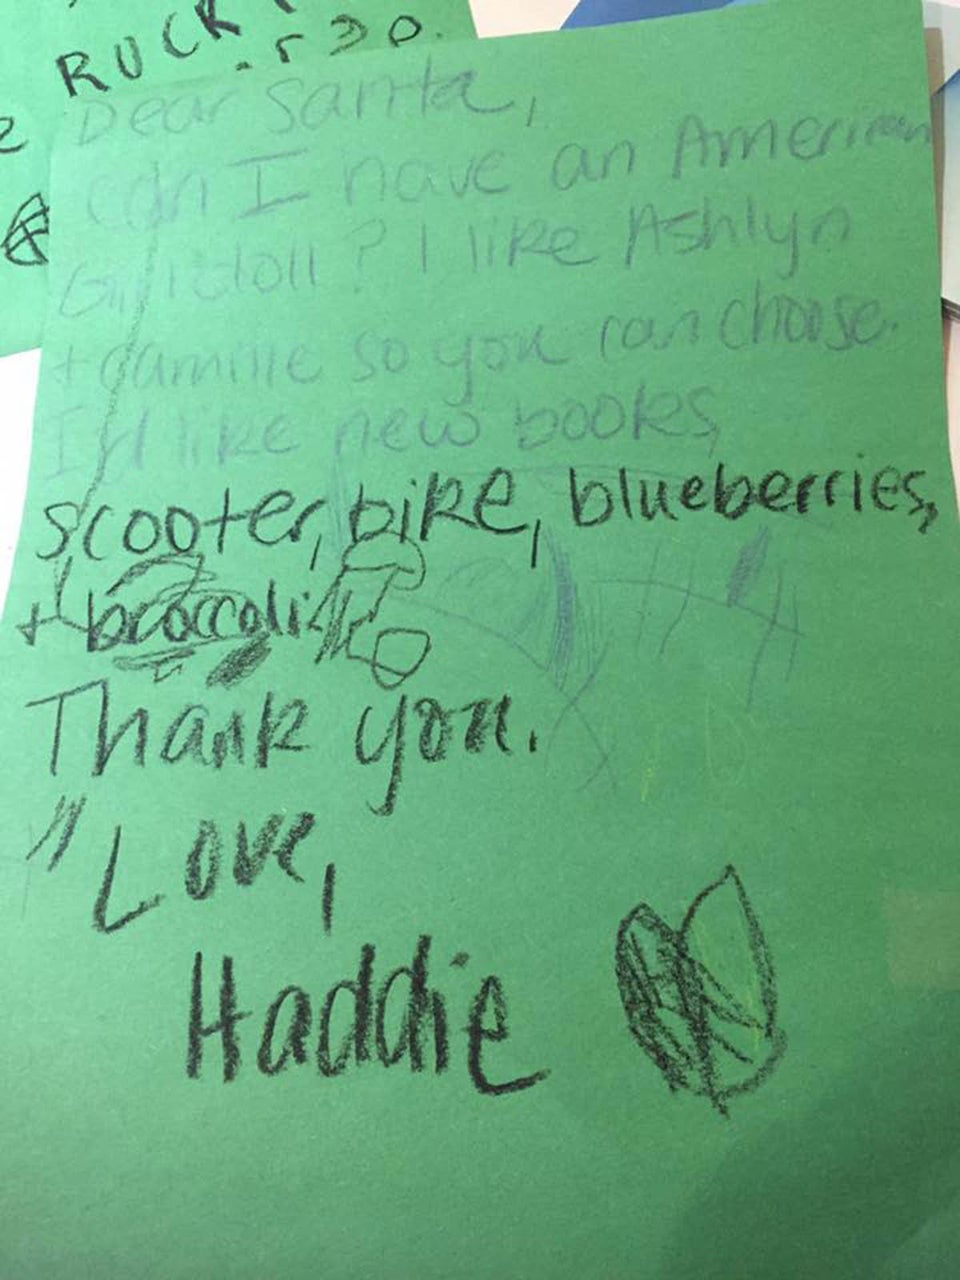 RUCK
Dear Santa,
can I have an American
Girl doll? I like Ashlyn
+ Camille so you can choose.
I'd like new books,
scooter, bike, blueberries,
+ broccoli.
Thank you.
Love,
Haddie